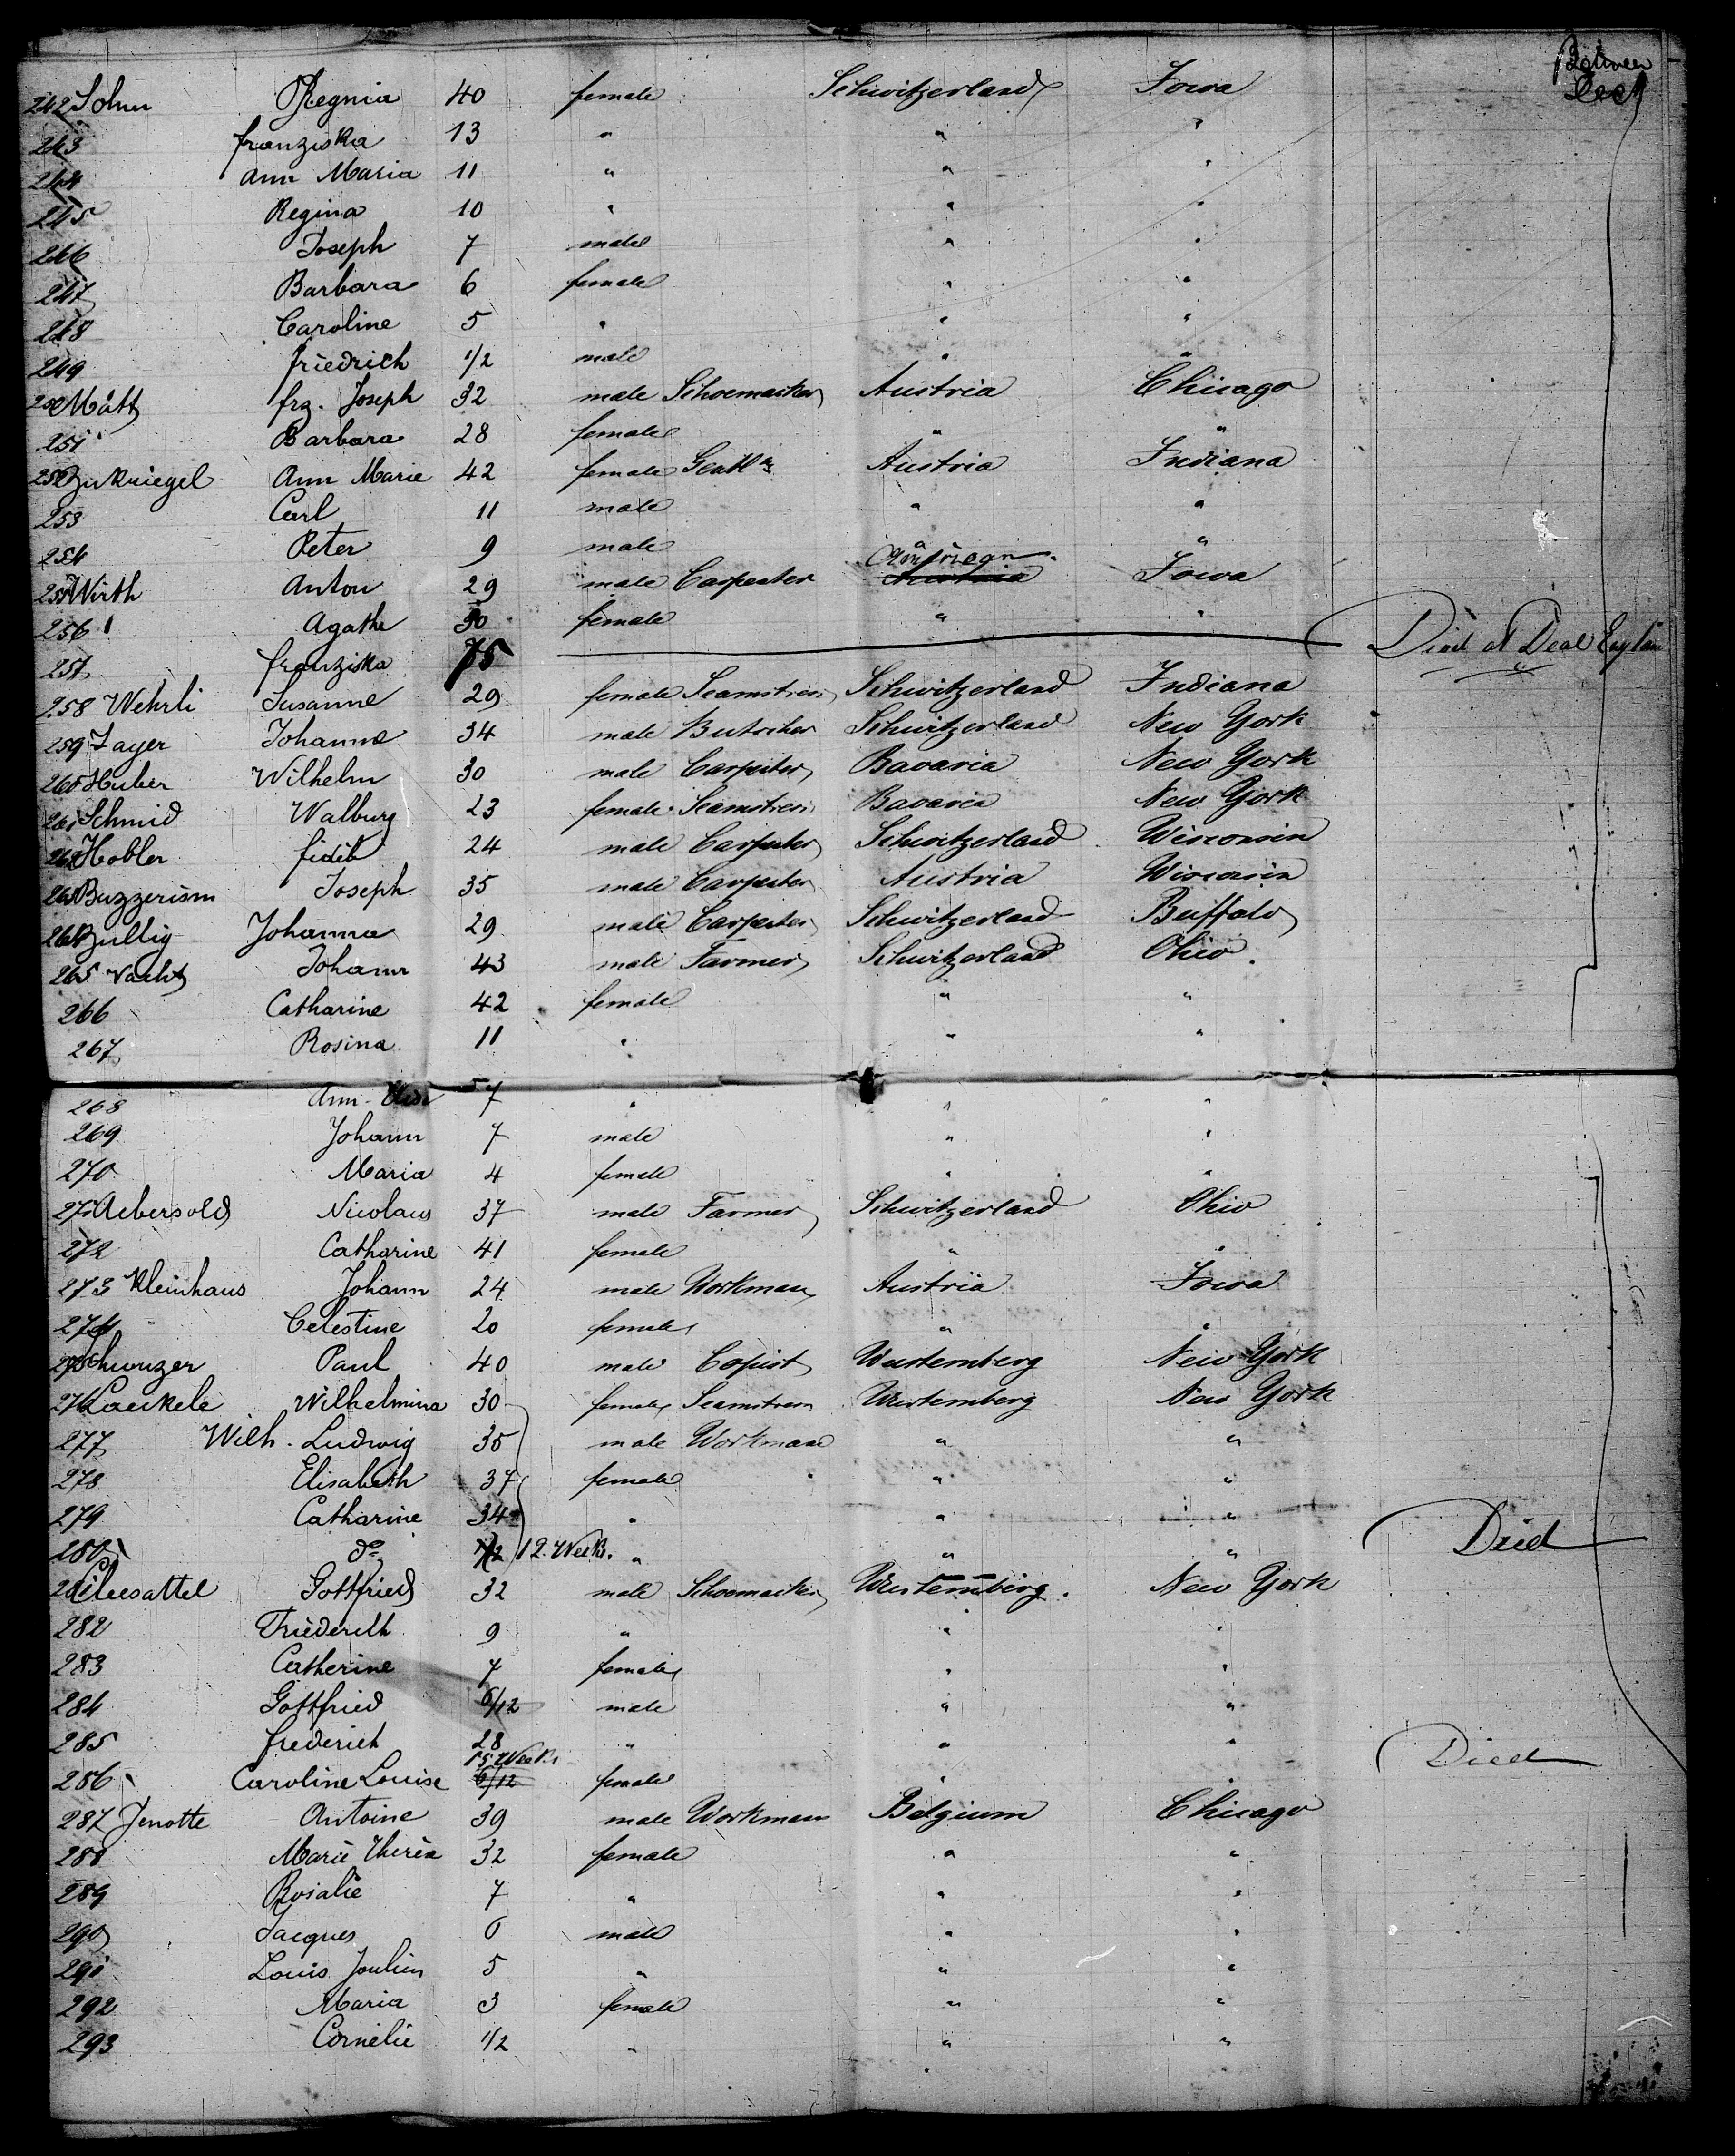 Between Deck
242 Sohm Regnia 40 female Schwitzerland Iowa
243 franziska 13 " " "
244 Ann Maria 11 " " "
245 Regina 10 " " "
246 Joseph 7 male " "
247 Barbara 6 female " "
248 Caroline 5 " " "
249 friedrich 1/2 male " "
250 Mätt frz. Joseph 32 male Schoemacker Austria Chicago
251 Barbara 28 female " "
252 Ann Marie 42 female Austria Indiana
253 Carl 11 male " "
254 Peter 9 male " "
255 Wirth Anton 29 male Carpenter American Iowa
256 Agathe 30 female " "
257 franziska 75 Died at Deal England
258 Wehrli Susanne 29 female Seamstress Schwitzerland Indiana
259 Johanne 34 male Butscher Schwitzerland New York
260 Huber Wilhelm 30 male Carpenter Bavaria New York
261 Schmid Walburg 23 female Seamstress Bavaria New York
262 Hobler 24 male Carpenter Schwitzerland Wisconsin
263 Joseph 35 male Carpenter Austria Wisconsin
264 Zullig Johanna 29 male Carpenter Schwitzerland Buffalo
265 Johann 43 male Farmer Schwitzerland Ohio.
266 Catharine 42 female " "
267 Rosina 11 " " "
268 Ann 7 " " "
269 Johann 7 male " "
270 Maria 4 female " "
271 Aebersold Nicolaus 37 male Farmer Schwitzerland Ohio
272 Catharine 41 female " "
273 Kleinhaus Johann 24 male Workman Austria Iowa
274 Celestine 20 female " "
275 Paul 40 male Copist Wurtemberg New York
276 Laeckele Wilhelmina 30 female Seamstress Wurtemberg New York
277 Wilh. Ludwig 35 male Workman " "
278 Elisabeth 37 female " "
279 Catharine 34 " " "
280 do 12 Weeks. " " " Died
281 Cleesattel Gottfried 32 male Schoemacker Wurtemberg. New York
282 Friederich 9 " " "
283 Catherine 7 female " "
284 Gottfried 6/12 male " "
285 frederich 28 " " "
286 Caroline Louise 6/12 15 Weeks female " " Died
287 Jenotte Antoine 39 male Workman Belgium Chicago
288 Marie Theresa 32 female " "
289 Rosalie 7 " " "
290 Jacques 6 male " "
291 Louis Joulien 5 " " "
292 Maria 3 female " "
293 Cornelie 1/2 " " "